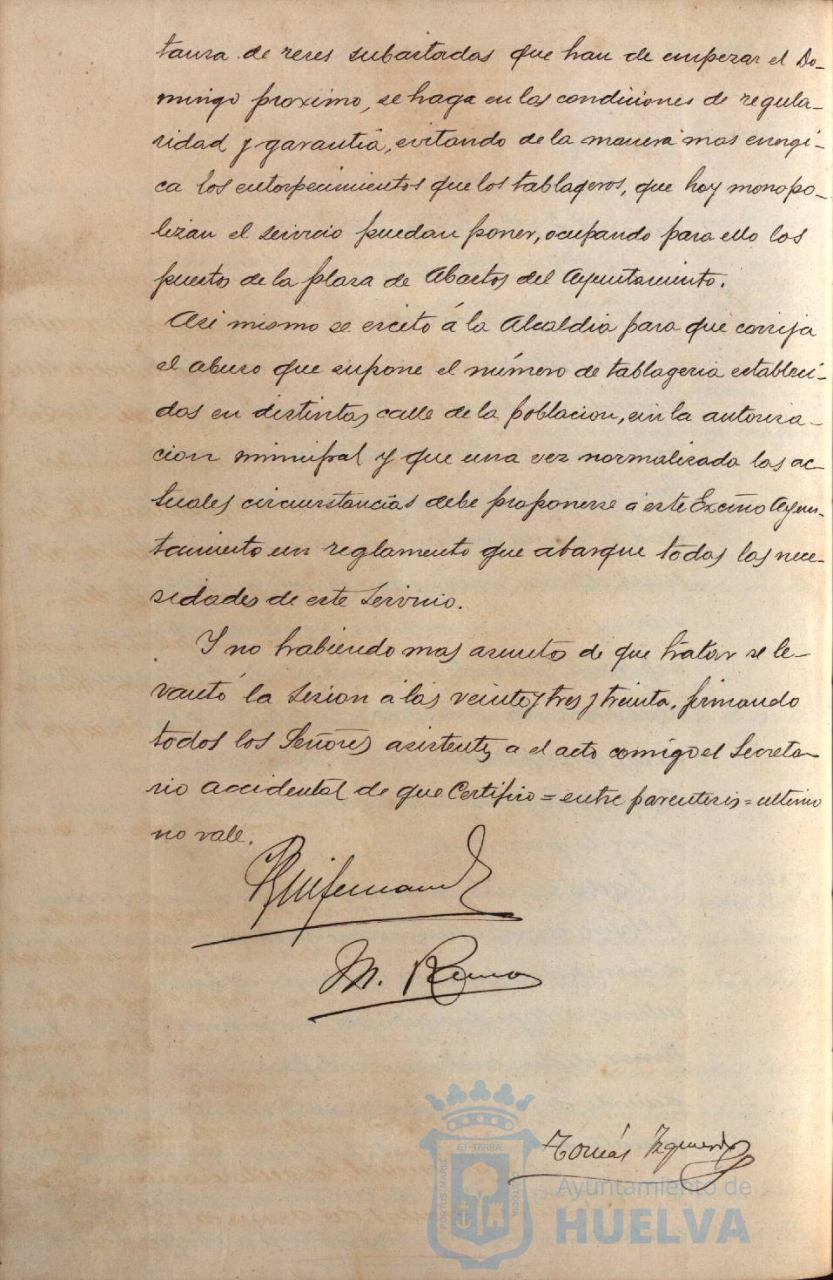 tanza de reses subastadas que han de empezar el Do-
mingo proximo, se haga en las condiciones de regula-
ridad y garantia, evitando de la manera mas energi-
ca los entorpecimientos que los tablageros, que hoy monopo-
lizan el servicio puedan poner, ocupando para ello los
puestos de la plaza de Abastos del Ayuntamiento.
Asi mismo se excito á la Alcaldia para que corrija
el abuso que supone el número de tablageria estableci-
dos en distintas calle de la poblacion, sin la autoriza-
cion municipal y que una vez normalizada las ac-
tuales circunstancias debe proponerse a este Excmo Ayun-
tamiento un reglamento que abarque todas las nece-
sidades de este Servicio.
Y no habiendo mas asuntos de que tratar se le-
vantó la Sesion a las veinte y tres y treinta, firmando
todos los Señores asistentes a el acto comigo el Secreta-
rio accidental de que Certifico = entre parentesis = ultimo
no vale.
M.
Tomás Izquierdo
ET TERRAE
PORTUS MARIS
CUSTODIA
Ayuntamiento de
HUELVA